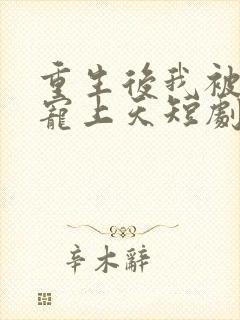 重生後我被
寵上天短劇
辛木辭